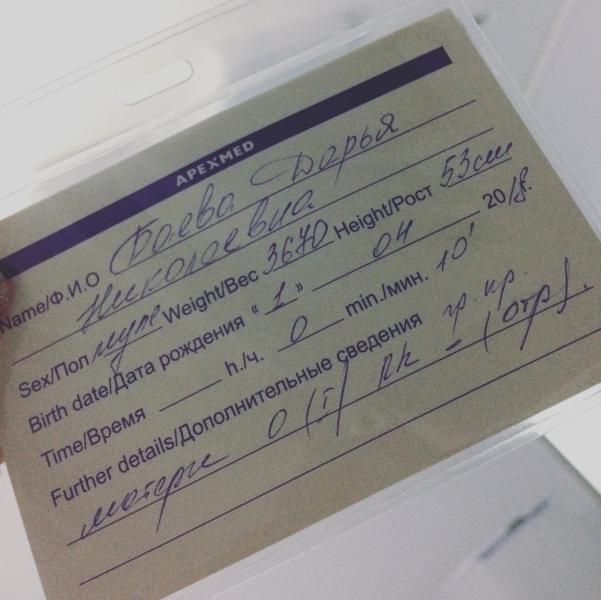 APEXMED
Name/Ф.И.О Баева Дарья
Николаевна
Sex/Пол муж Weight/Вес 3670 Height/Рост 53см
Birth date/Дата рождения "1" 04 2018.
Time/Время h./ч. 0 min./мин. 10'
Further details/Дополнительные сведения гр. кр.
матери O (I) Rh - (отр).